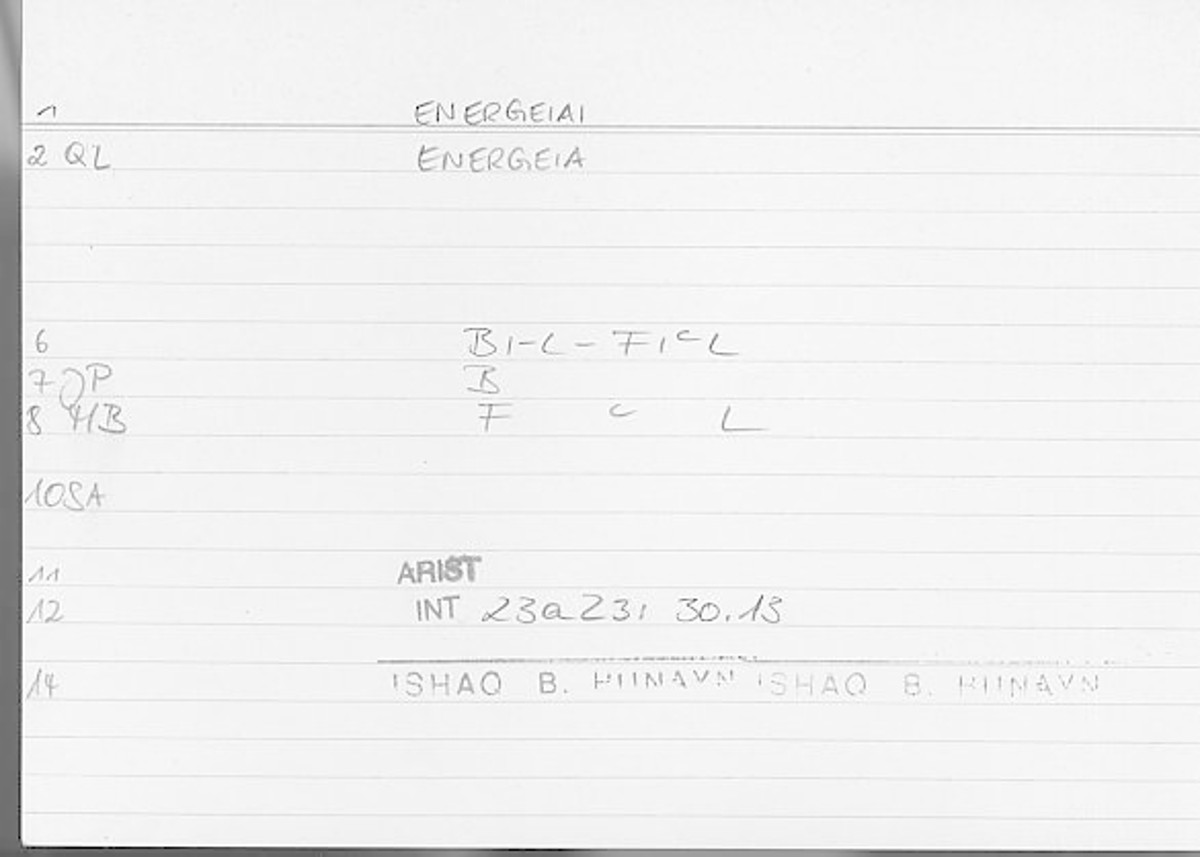 1 ENERGEIAI
2 QL ENERGEIA
6 BI-L-FIᶜL
7 JP B
8 HB F ᶜ L
10 SA
11 ARIST
12 INT 23a23; 30.13
14 ISHAQ B. HUNAYN ISHAQ B. HUNAYN